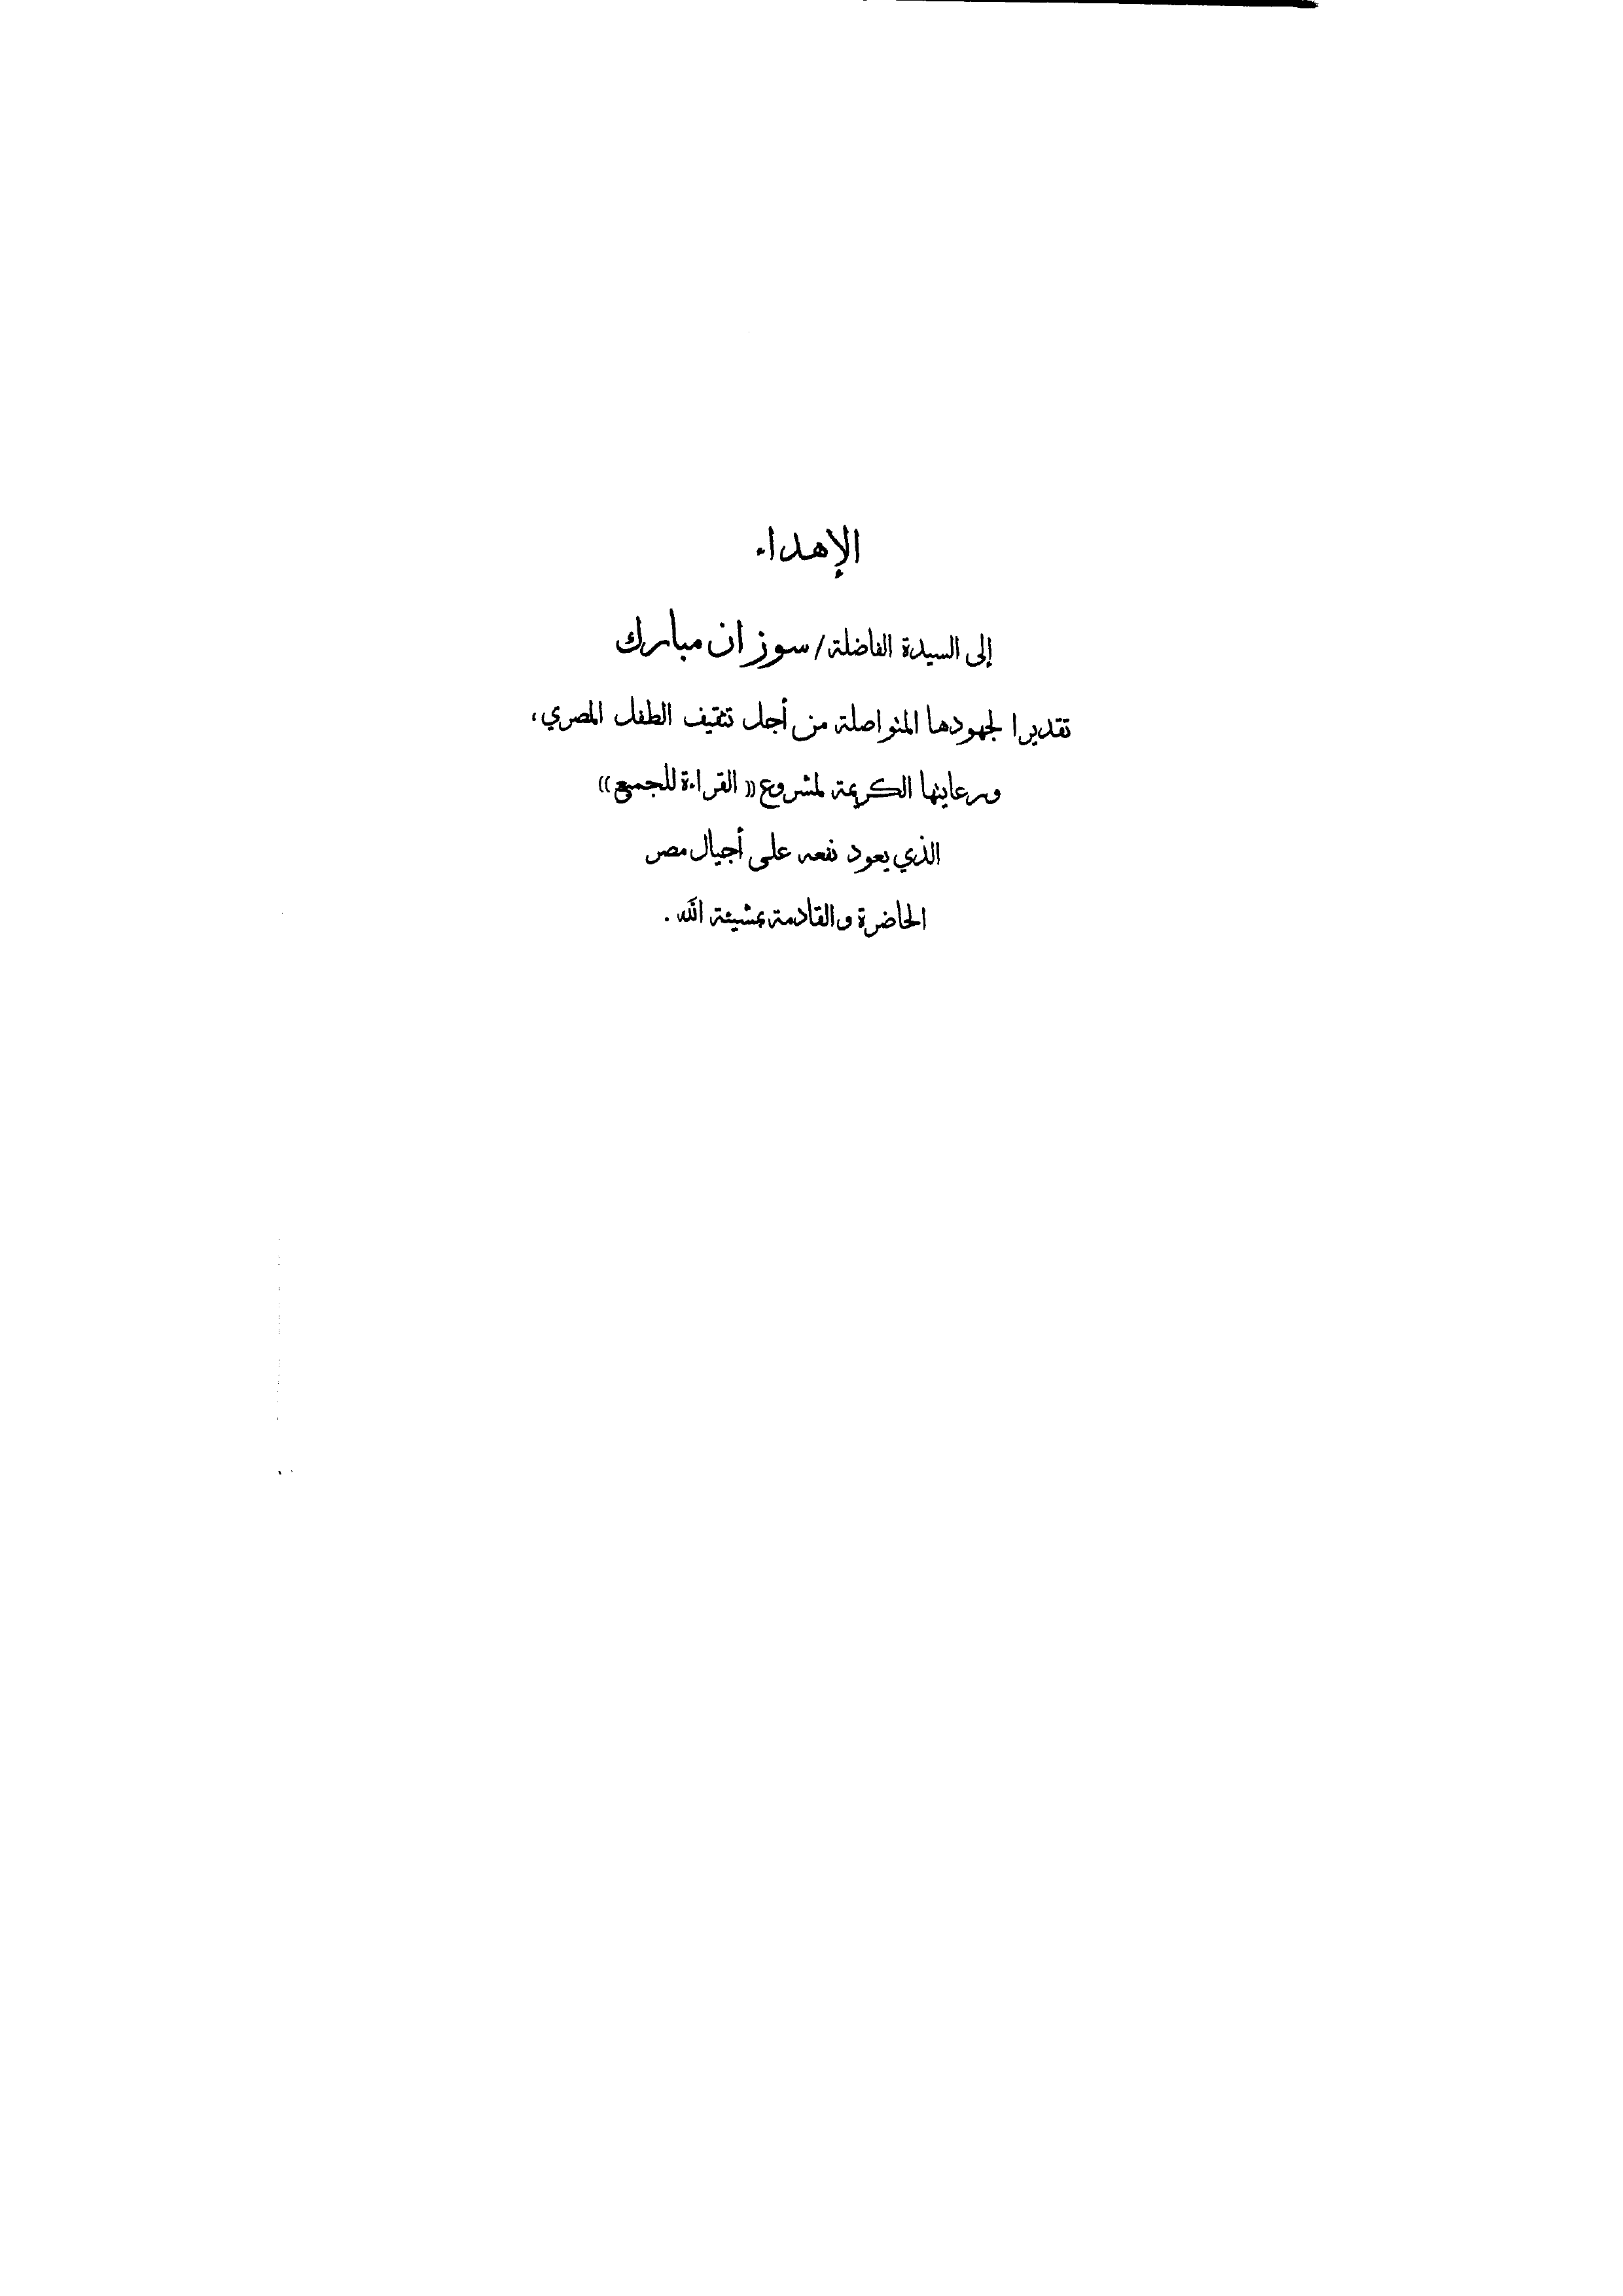 الإهداء
إلى السيدة الفاضلة/ سوزان مبارك
تقديرا لجهودها المتواصلة من أجل تثقيف الطفل المصري،
ورعايتها الكريمة لمشروع ((القراءة للجميع))
الذي يعود نفعه على أجيال مصر
الحاضرة والقادمة بمشيئة الله .